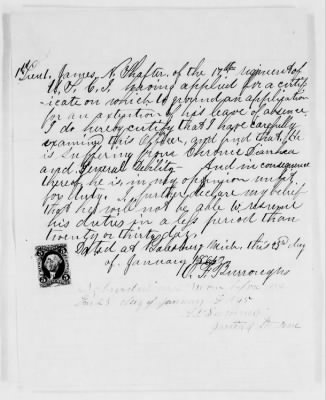 1st Lieut. James N. Shafter of the 17th regiment of
U. S. C. I. having applied for a certif-
icate on which to ground an application
for an extention of his leave of absence,
I do hereby certify that I have carefully
examined this Officer, and find that, he
is suffering from Chronic Diarrhea
and General debility. And in consequence
thereof he is in my opinion unfit
for duty. I further declare my belief
that he will not be able to resume
his duties in a less period than
twenty or thirty days.
Dated at Galesburg Mich. this 23d day
of January
Burroughs
Subscribed and sworn before me
this 23 day of January
Justice of the Peace